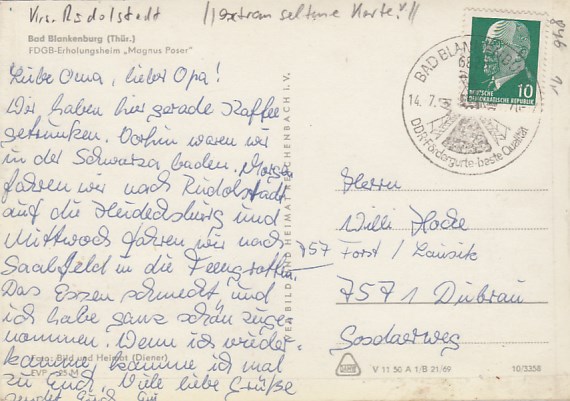 Krs. Rudolstadt
//extrem seltene Karte!//
Bad Blankenburg (Thür.)
FDGB-Erholungsheim „Magnus Poser"
Liebe Oma, lieber Opa!
Wir haben hier gerade Kaffee
getrunken. Vorhin waren wir
in der Schwarza baden. Morgen
fahren wir nach Rudolstadt
auf die Heidecksburg und
Mittwoch fahren wir nach
Saalfeld in die Feengrotten.
Das Essen schmeckt und
ich habe ganz schön zuge-
nommen. Wenn ich wieder-
komme, komme ich mal
zu Euch. Viele liebe Grüße
sendet Euch
Foto: Bild und Heimat (Diener)
EVP
VEB BILD UND HEIMAT REICHENBACH I. V.
BAD BLANKENBURG
68
14. 7.
DDR-Fördergurte-beste Qualität
10
DEUTSCHE
DEMOKRATISCHE REPUBLIK
Herrn
Willi Hocke
757 Forst / Lausitz
7571 Dubrau
Sosdaerweg
V 11 50 A 1/B 21/69
10/3358